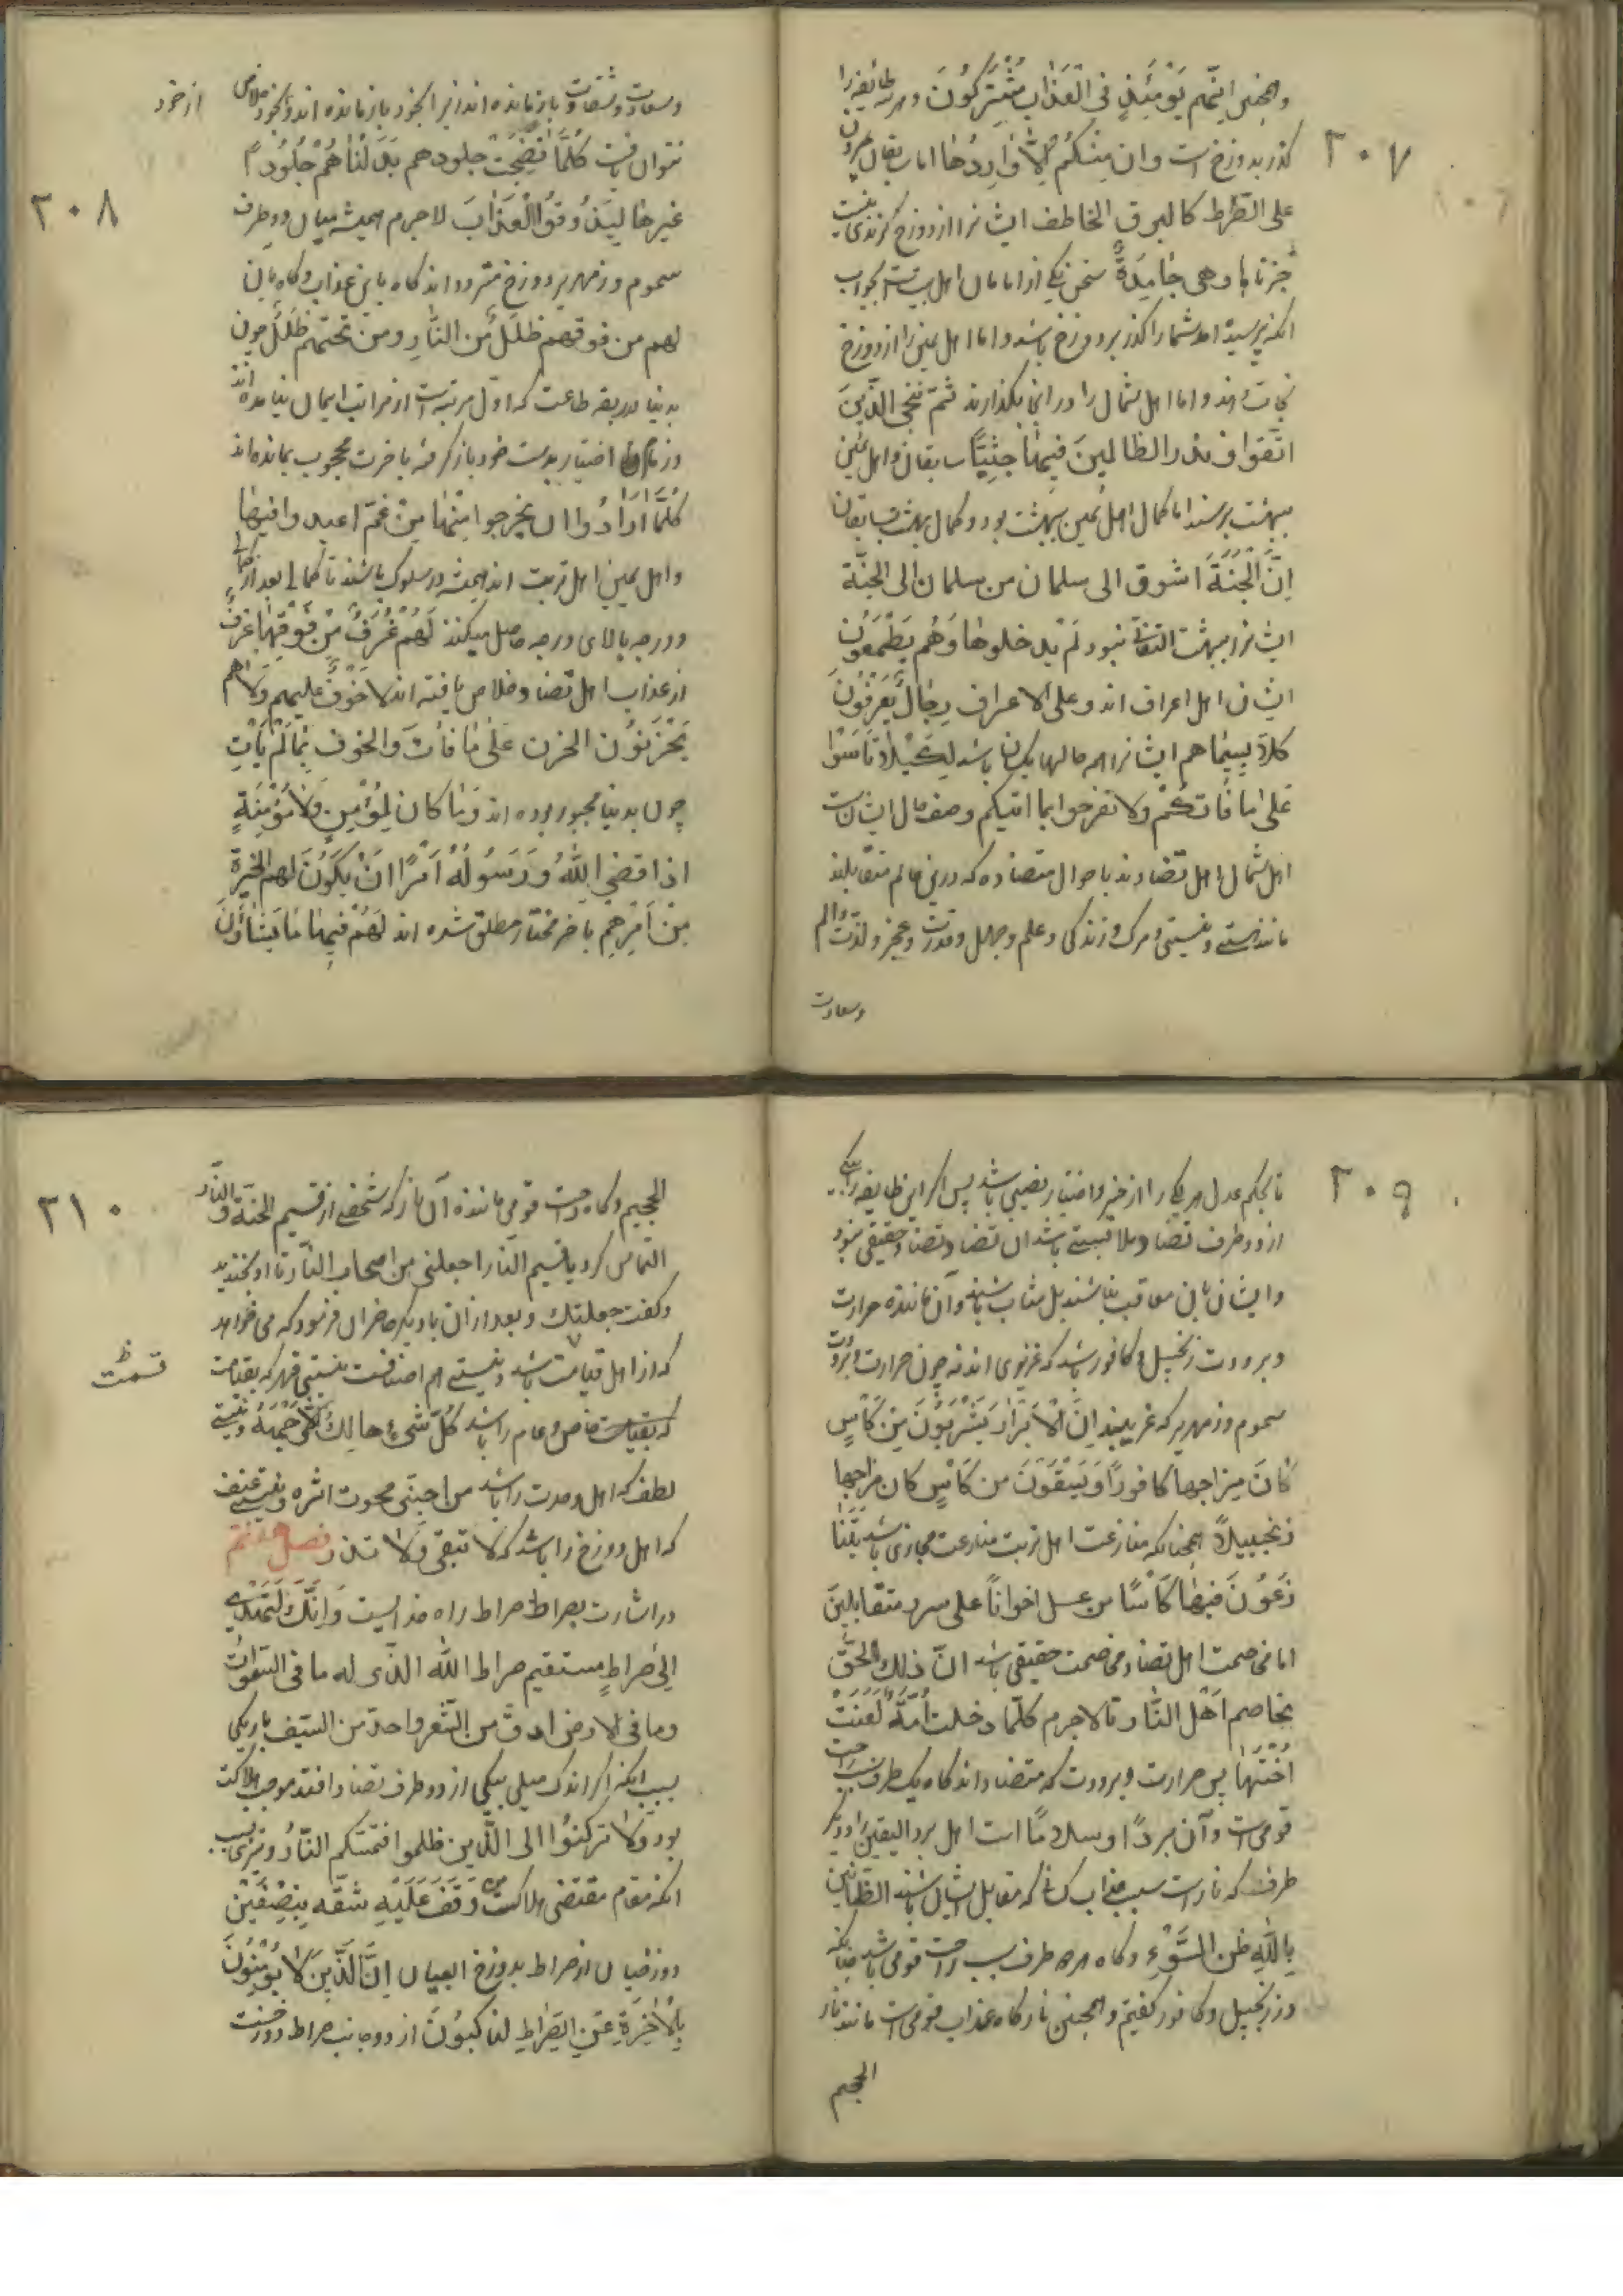 و همچنین انهم یومئذ فی العذاب مشترکون و هر سه طائفه را
۲۰۷
گذر بدوزخ است وان منکم الا واردها اما سابقان یمرون
علی الصراط کالبرق الخاطف ایشانرا از دوزخ گزندی نیست
جزناها وهی خامدة سخن یکی از امامان اهل بیتست بجواب
آنکه پرسیده اند شما را گذر بر دوزخ باشد و اما اهل یمین را از دوزخ
نجات دهند و اما اهل شمال را در آنجا بگذارند ثم ننجی الذین
اتقوا ونذر الظالمین فیها جثیا سابقان و اهل یمین
ببهشت برسند اما کمال اهل یمین ببهشت بود و کمال بهشت بسابقان
ان الجنة اشوق الی سلمان من سلمان الی الجنة
ایشانرا ببهشت التفات نبود لم یدخلوها وهم یطمعون
ایشان اهل اعراف اند وعلی الاعراف رجال یعرفون
کلا بسیماهم ایشانرا همه حالها یکسان باشد لکیلا تأسوا
علی ما فاتکم ولا تفرحوا بما اتیکم وصف حال ایشانست
اهل شمال اهل تضادند باحوال متضاده که درین عالم متقابلند
مانند هستی و نیستی و مرگ و زندگی و علم و جهل و قدرت و عجز و لذت و الم
وسعادت
وسعادت و شقاوت باز مانده اند زیرا بخود باز مانده اند و بخود خلاصی
از خود
۲۰۸
نتوان یافت کلما نضجت جلودهم بدلناهم جلودا
غیرها لیذوقوا العذاب لاجرم همیشه میان دو طرف
سموم و زمهریر دوزخ متردد اند گاه باین عذاب و گاه بآن
لهم من فوقهم ظلل من النار ومن تحتهم ظلل چون
بدنیا در ربقه طاعت که اول مرتبه است از مراتب ایمان نیامده اند
و زمام اختیار بدست خود باز گرفته بآخرت محجوب بمانده اند
کلما ارادوا ان یخرجوا منها من غم اعیدوا فیها
و اهل یمین اهل تربت اند همیشه در سلوک باشند تا کمالی بعد از کمالی
و درجه بالای درجه حاصل میکنند لهم غرف من فوقها غرف
از عذاب اهل تضاد خلاص یافته اند لا خوف علیهم ولا هم
یحزنون الحزن علی ما فات والخوف مما لم یأت
چون بدنیا مجبور بوده اند وما کان لمؤمن ولا مؤمنة
اذا قضی الله ورسوله امرا ان یکون لهم الخیرة
من امرهم بآخر مختار مطلق شده اند لهم فیها ما یشاؤن
۲۰۹
تا بحکم عدل هر یکی را از خیر و اختیار نصیبی باشد پس اگر این طایفه را
از دو طرف تضاد ملابستی باشد آن تضاد تضاد حقیقی نبود
و ایشان بآن معاقب نباشند بل مثاب باشند و آن مانند حرارت
و برودت زنجبیل و کافور باشد که غریزی اند نه چون حرارت و برودت
سموم و زمهریر که غریبند ان الابرار یشربون من کأس
کان مزاجها کافورا ویسقون من کأس کان مزاجها
زنجبیلا همچنانکه منازعت اهل تربت منازعت مجازی باشد یتنا
زعون فیها کأسا من عسل اخوانا علی سرر متقابلین
اما مخاصمت اهل تضاد مخاصمت حقیقی باشد ان ذلک لحق
تخاصم اهل النار تا لاجرم کلما دخلت امة لعنت
اختها پس حرارت و برودت که متضاد اند گاه یک طرف سبب راحت
قومی است و آن بردا وسلاما است اهل برد الیقین را و دیگر
طرف که نار است سبب عذاب کسانی که مقابل ایشان باشند الظانین
بالله ظن السوء و گاه هر دو طرف سبب راحت قومی باشد چنانکه
در زنجبیل و کافور گفتیم و همچنین نار گاه عذاب قومی است مانند نار
الجحیم
۲۱۰
الجحیم و گاه راحت قومی مانند آن نار که شخصی از قسیم الجنة والنار
التماس کرد یا قسیم النار اجعلنی من اصحاب النار تا او بخندید
و گفت جعلتک و بعد از آن با دیگر حاضران فرمود که می خواهد
که از اهل قیامت باشد و نیستی هم اضافتست نیستی قهر که بقیامت
قسمت ظ
که بقیامت خاص و عام را باشد کل شیء هالک الا وجهه و نیستی
لطف که اهل وحدت را باشد من احبنی محوت اثره و نیستی عنف
که اهل دوزخ را باشد که لا تبقی ولا تذر فصل هفتم
در اشارت بصراط صراط راه خدایست وانک لتهدی
الی صراط مستقیم صراط الله الذی له ما فی السموات
وما فی الارض ادق من الشعر واحد من السیف باریکی
بسبب آنکه اگر اندک میلی بیکی از دو طرف تضاد افتد موجب هلاکت
بود ولا ترکنوا الی الذین ظلموا فتمسکم النار و تیزی بسبب
آنکه مقام مقتضی هلاکست من وقف علیه شقه بنصفین
دوزخیان از صراط بدوزخ افتند ان الذین لا یؤمنون
بالاخرة عن الصراط لناکبون از دو جانب صراط دوزخست